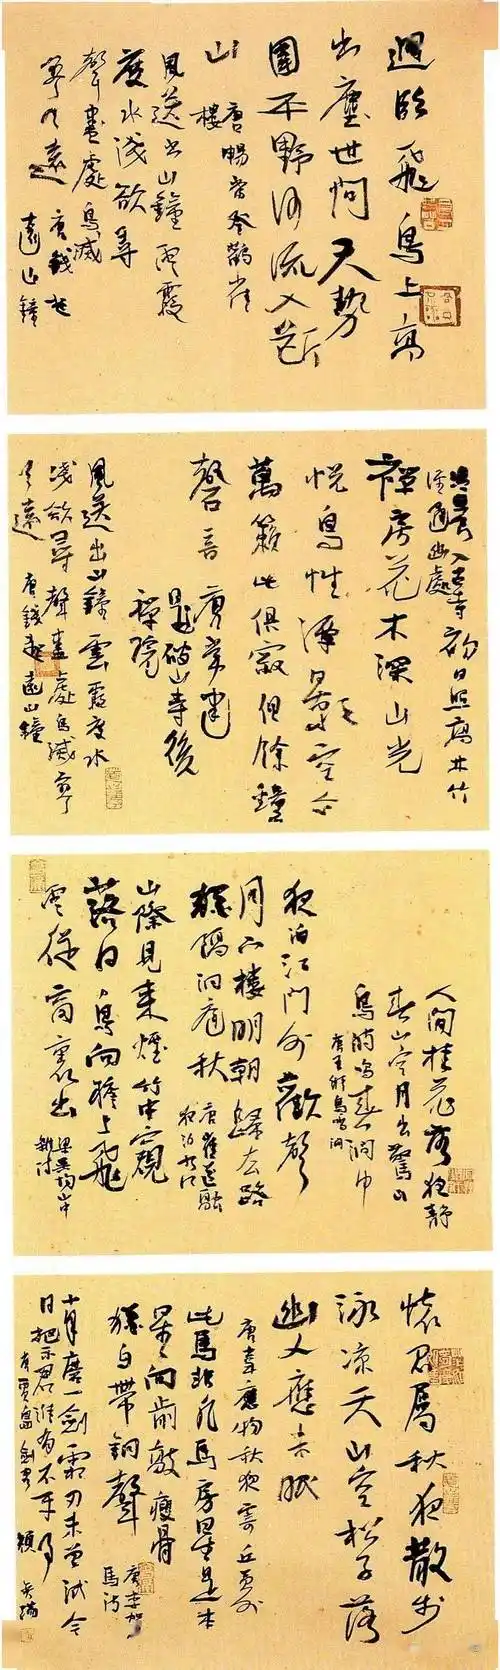 迥臨飛鳥上高
出塵世間天勢
圍平野河流入斷
山
唐暢當登鸛雀
樓
風送出山鐘雲霞
度水淺欲尋
聲盡處鳥滅
寥天遠
唐錢起
遠山鐘
清晨入古寺初日照高林竹
徑通幽處
禪房花木深山光
悅鳥性潭影空人
萬籟此俱寂但餘鐘
磬音
唐常建
題破山寺後
禪院
風送出山鐘雲霞度水
淺欲尋聲盡處鳥滅寥
天遠
唐錢起遠山鐘
人閒桂花落夜靜
春山空月出驚山
鳥時鳴春澗中
唐王維鳥鳴澗
夜泊江門外歡聲
月裏樓明朝歸去路
猶隔洞庭秋
唐崔道融
夜泊九江
山際見來煙竹中窺
落日鳥向檐上飛
雲從窗裏出
吳均山中
雜詩
懷君屬秋夜散步
詠涼天山空松子落
幽人應未眠
唐韋應物秋夜寄丘員外
此馬非凡馬房星是本
星向前敲瘦骨
猶自帶銅聲
唐李賀
馬詩
十年磨一劍霜刃未曾試今
日把示君誰有不平事
賈島劍客